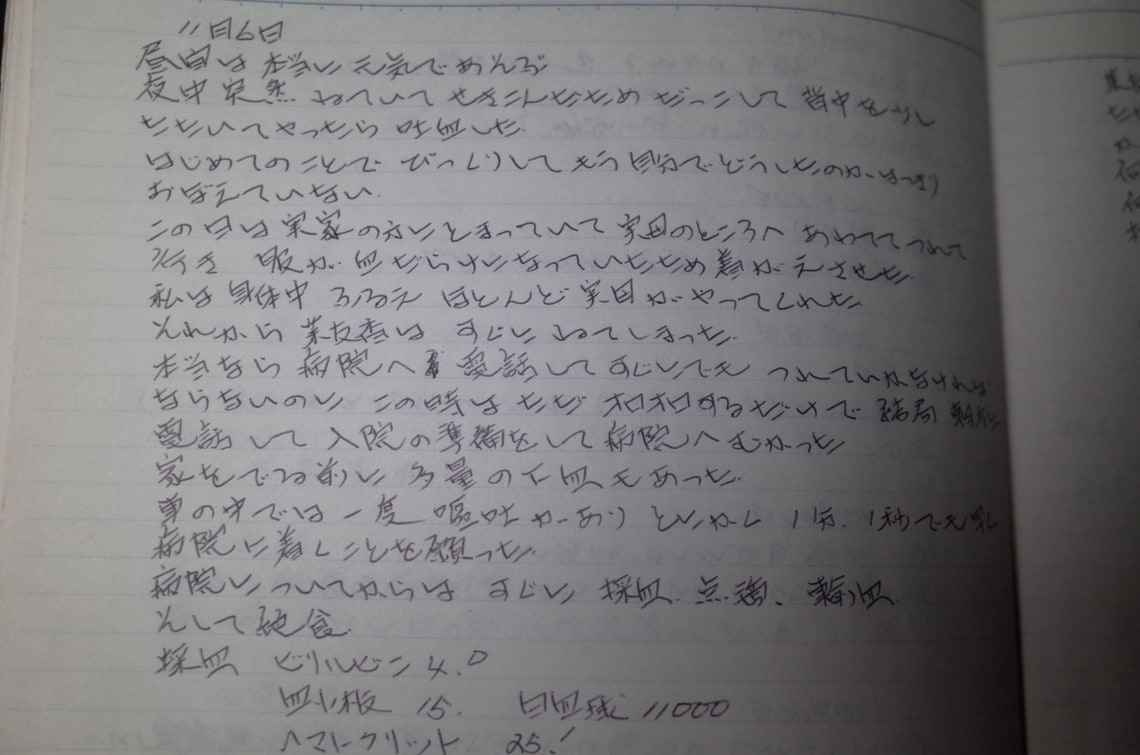 11月6日
昼間は本当に元気であそぶ
夜中突然 ねていて せきこんだため だっこして 背中を少し
たたいてやったら 吐血した.
はじめてのことで びっくりして もう自分でどうしたのかはっきり
おぼえていない.
この日は実家の方にとまっていて 実母のところへ あわててつれて
行き 服が血だらけになっていたため 着がえさせた.
私は身体中ふるえ ほとんど実母がやってくれた.
それから は すぐにねてしまった.
本当なら病院へ電話して すぐにでも つれていかなければ
ならないのに この時は ただオロオロするだけで 結局 朝方に
電話して 入院の準備をして病院へむかった
家をでる前に 多量の下血もあった.
車の中では 一度 嘔吐があり とにかく 1分、1秒でも早く
病院に着くことを願った.
病院についてからは すぐに 採血、点滴、輸血
そして絶食.
採血 ビリルビン 4.0
血小板 15. 白血球 11000
ヘマトクリット 25.1